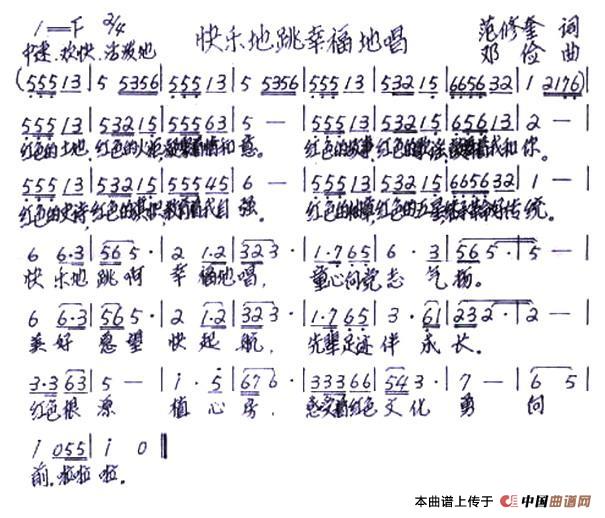 1=F 2/4 快乐地跳幸福地唱 范修奎 词
中速、欢快、活泼地 邓俭 曲
(555 13|5 5356|555 13|5 5356|555 13|532 15|6656 32|1 2176)|
555 13|532 15|555 63|5 —|555 13|532 15|656 13|2 —|
红色的土地,红色的火炬,情和意。红色的故事,红色的我和你。
555 13|532 15|555 45|6 —|555 13|532 15|6656 32|1 —|
红色的史诗,红色的旗帜,教育我代自强。红色的红色的五星好传统。
6 6·3|565·|2 1·2|323·|1·765|6·3|565·|5 —|
快乐地跳啊幸福地唱,童心向党志气扬。
6 6·3|565·|2 1·2|323·|1·765|3·61|232·|2 —|
美好愿望快起航,先辈足迹伴成长。
3·3 63|5 —|i·5|676·|333 66|543·|7 —|6 5|
红色根源植心房,红色文化勇向
i 055|i 0‖
前。啦啦啦。
本曲谱上传于 中国曲谱网